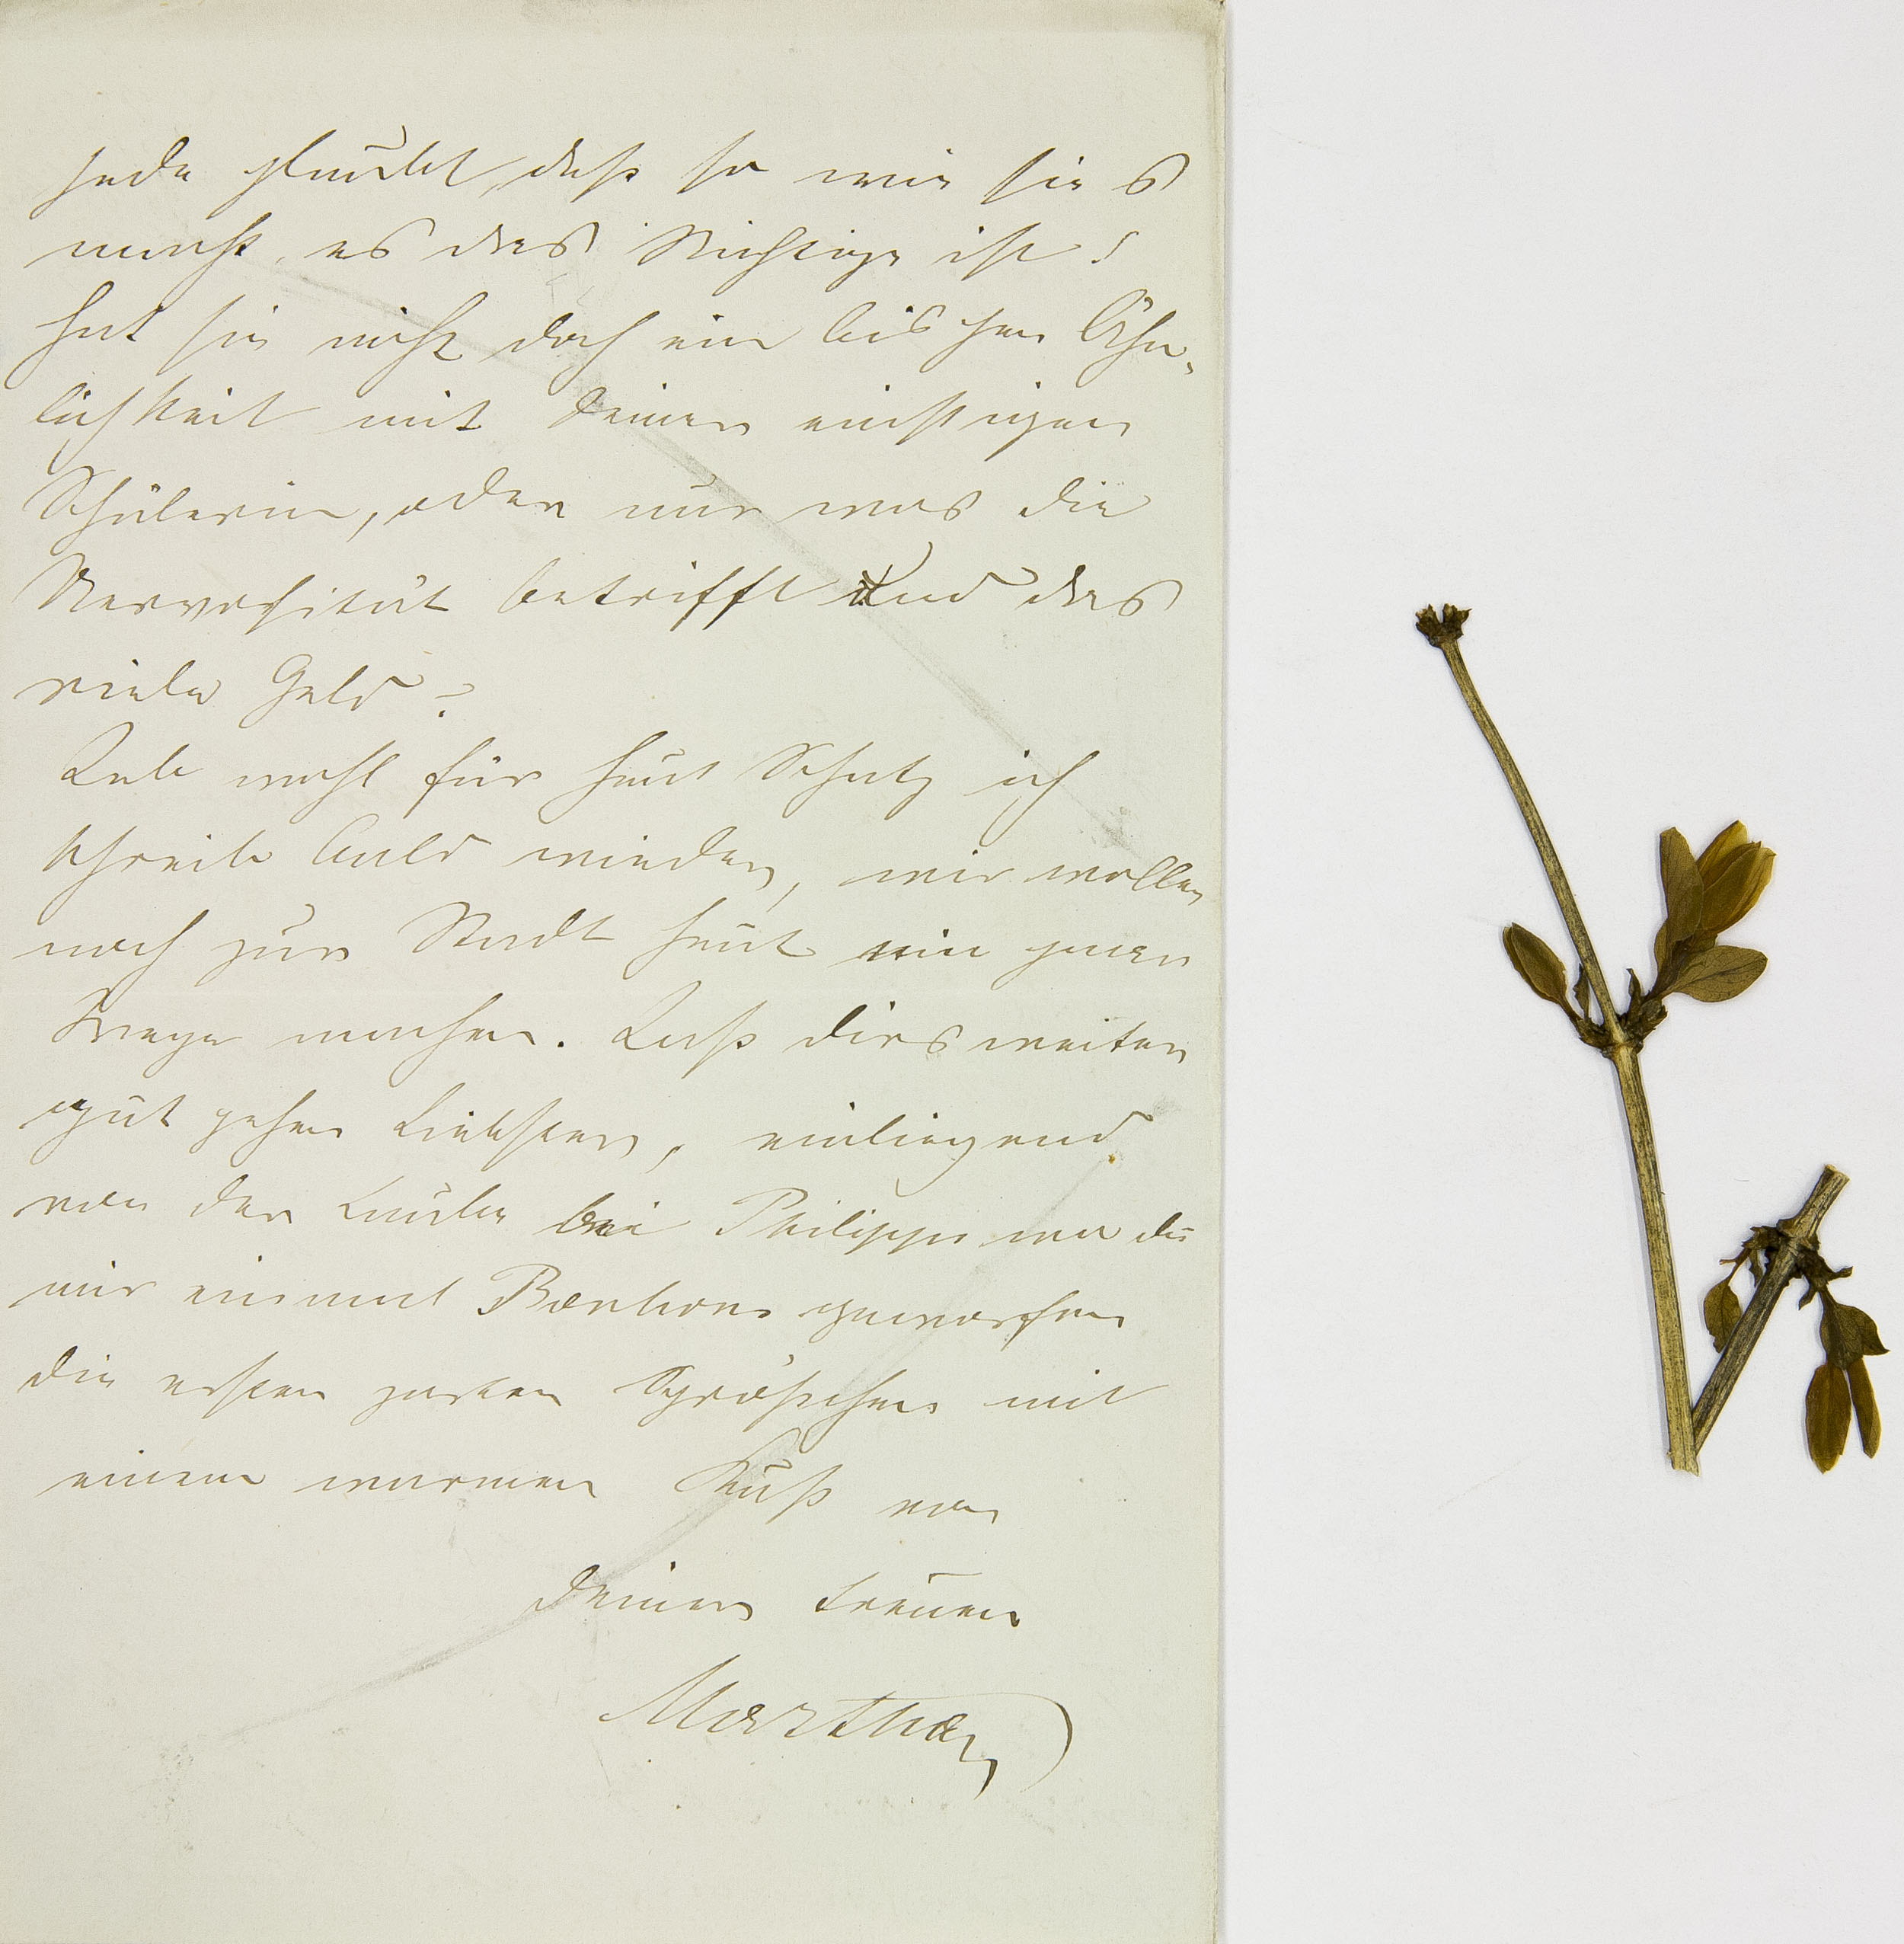 jede glaubt, daß so wie sie's
macht, es das Richtige ist!
hat sie nicht doch ein bischen Ähn-
lichkeit mit Deiner einstigen
Schülerin, oder nur was die
Nervosität betrifft und das
viele Geld?
Leb wohl für heut Schatz ich
schreibe bald wieder, wir wollen
noch zur Stadt heut ein paar
Wege machen. Laß dirs weiter
gut gehen Liebster, einliegend
von der Laube bei Philipps wo du
mir einmal Bonbons geworfen
die ersten zarten Sprößchen mit
einem warmen Kuß von
Deiner treuen
Martha